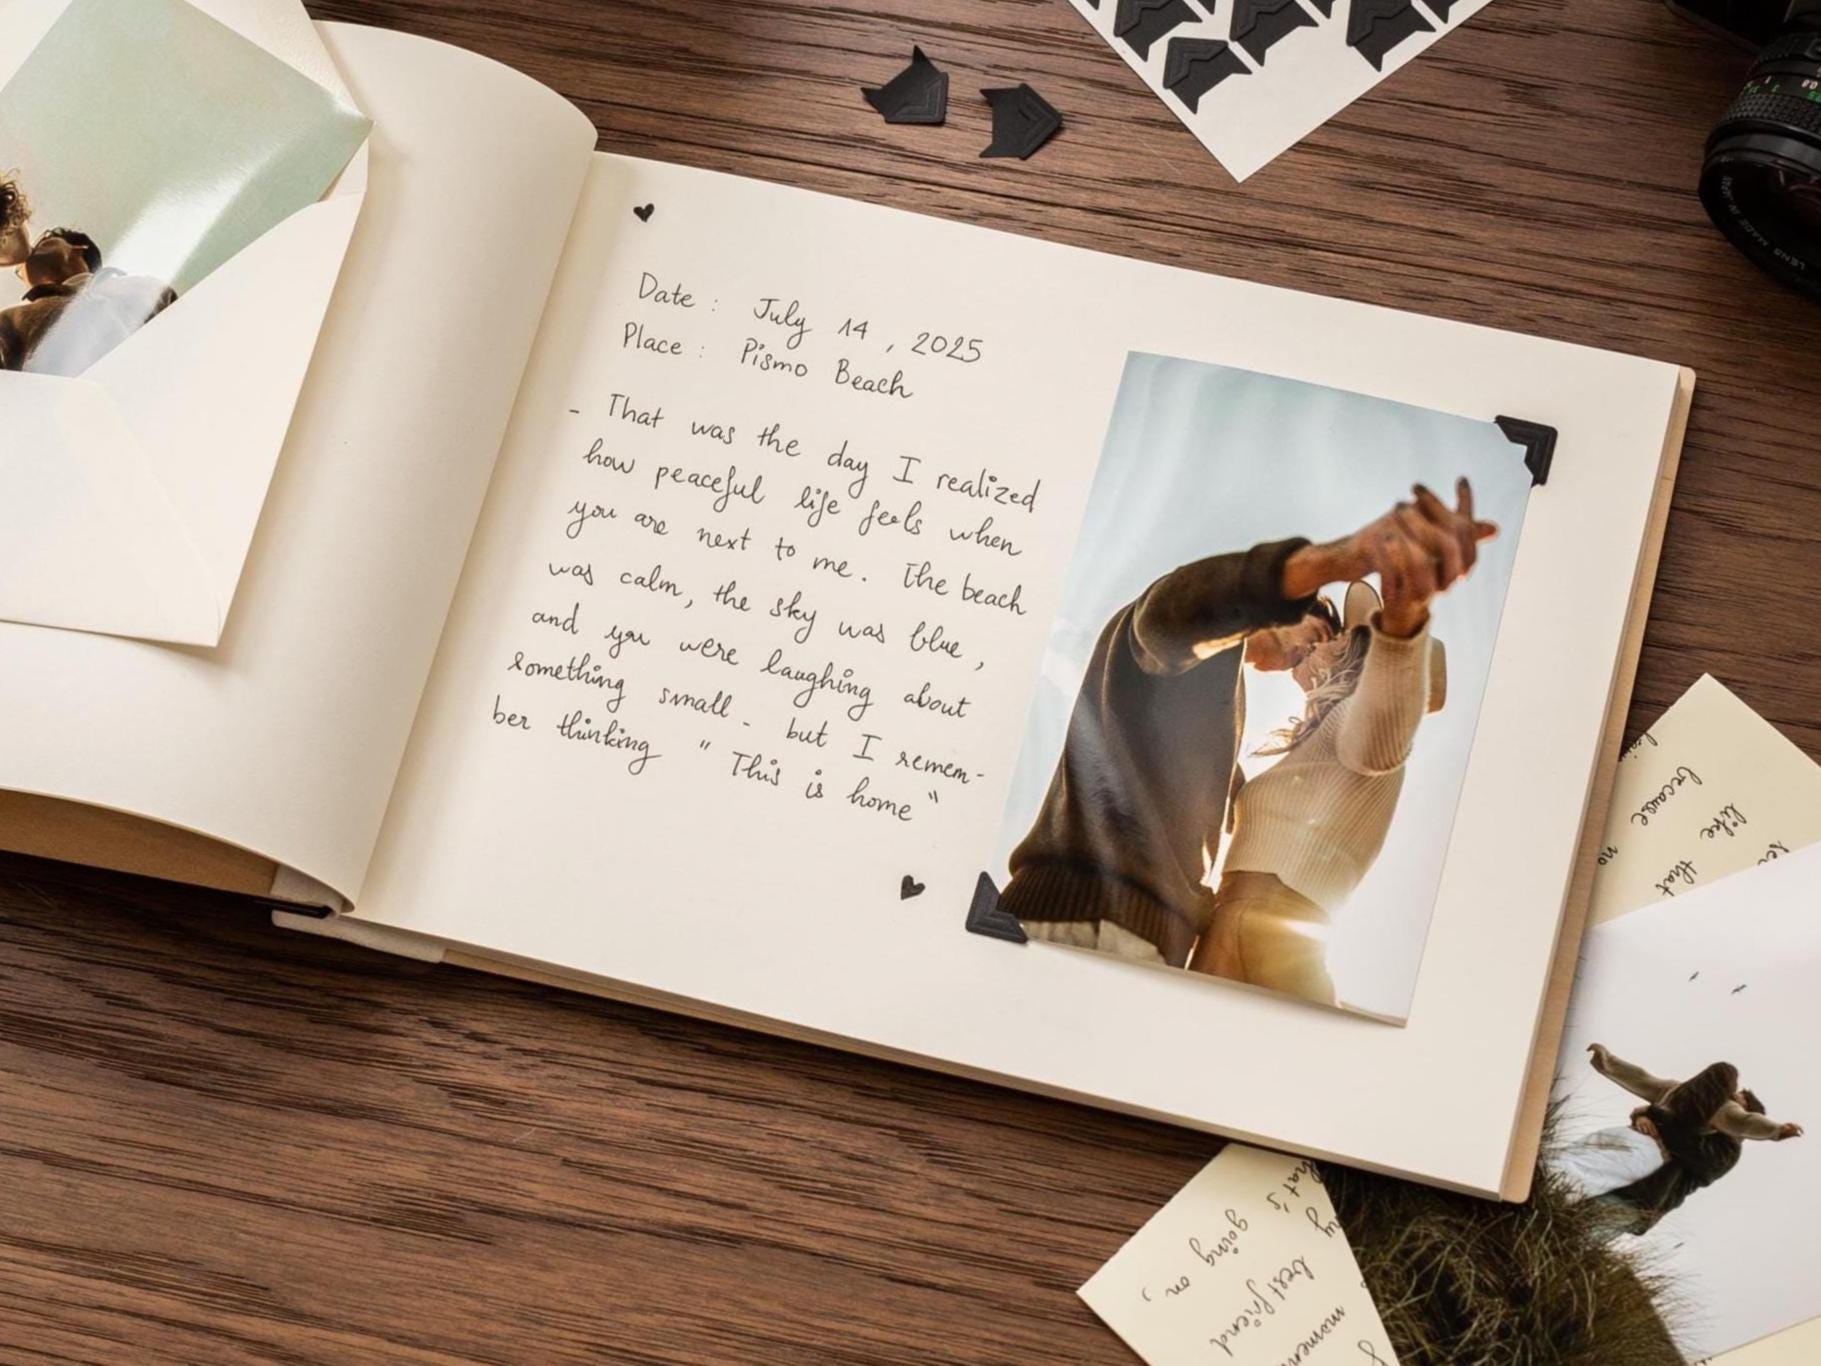 Date : July 14 , 2025
Place : Pismo Beach
- That was the day I realized
how peaceful life feels when
you are next to me. The beach
was calm, the sky was blue,
and you were laughing about
something small - but I remem-
ber thinking " This is home "
because
like
that
no
that's
going on,
my
best friend
LENS MADE IN JAPAN